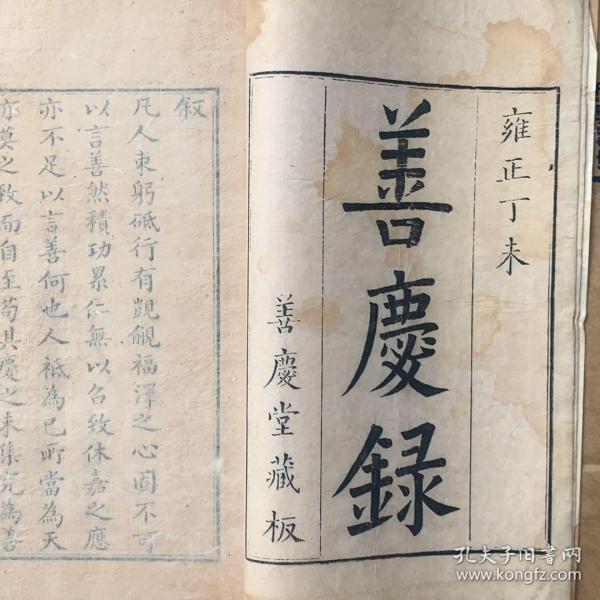 雍正丁未
善慶錄
善慶堂藏板
叙
凡人束躬砥行有覬覦福澤之心固不可
以言善然積功累仁無以召致休嘉之應
亦不足以言善何也人祗為已所當為天
亦莫之致而自至苟其慶之未集究為善
孔夫子旧书网
www.kongfz.com